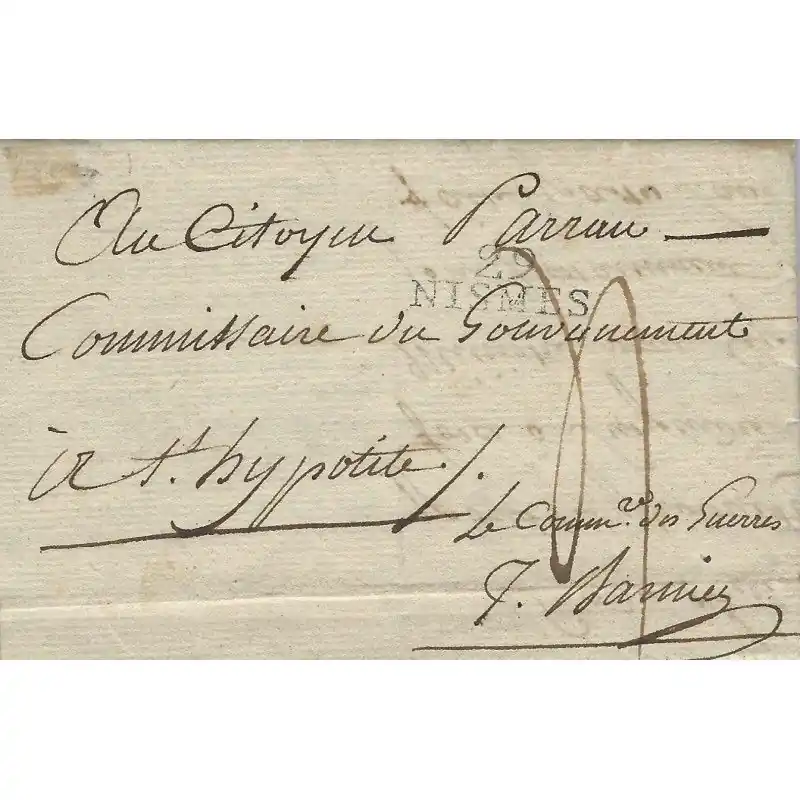 Au Citoyen Parran
29
NISMES
Commissaire du Gouvernement
à St. hypotite
Le Commre. des Guerres